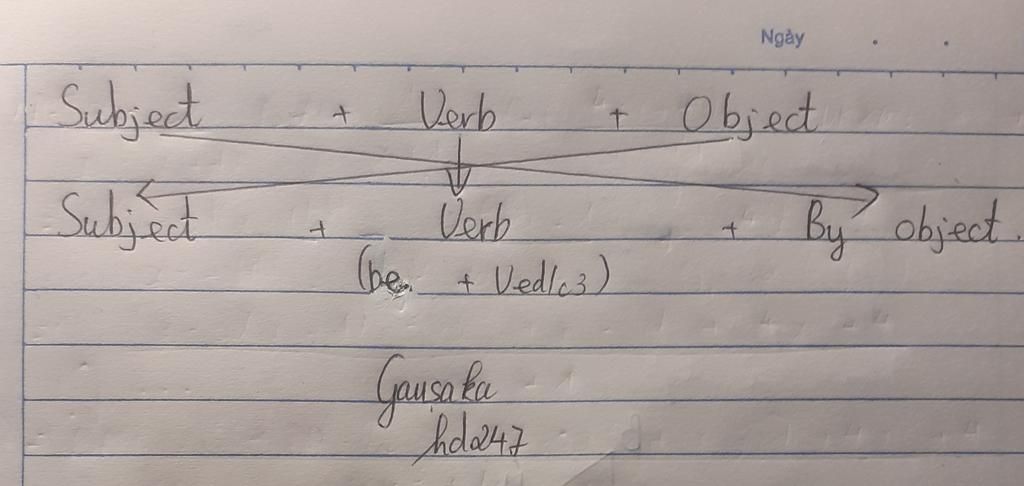 Ngày . .
Subject + Verb + Object
Subject + Verb + By object.
(be + Ved/c3)
Gausaka
hda247